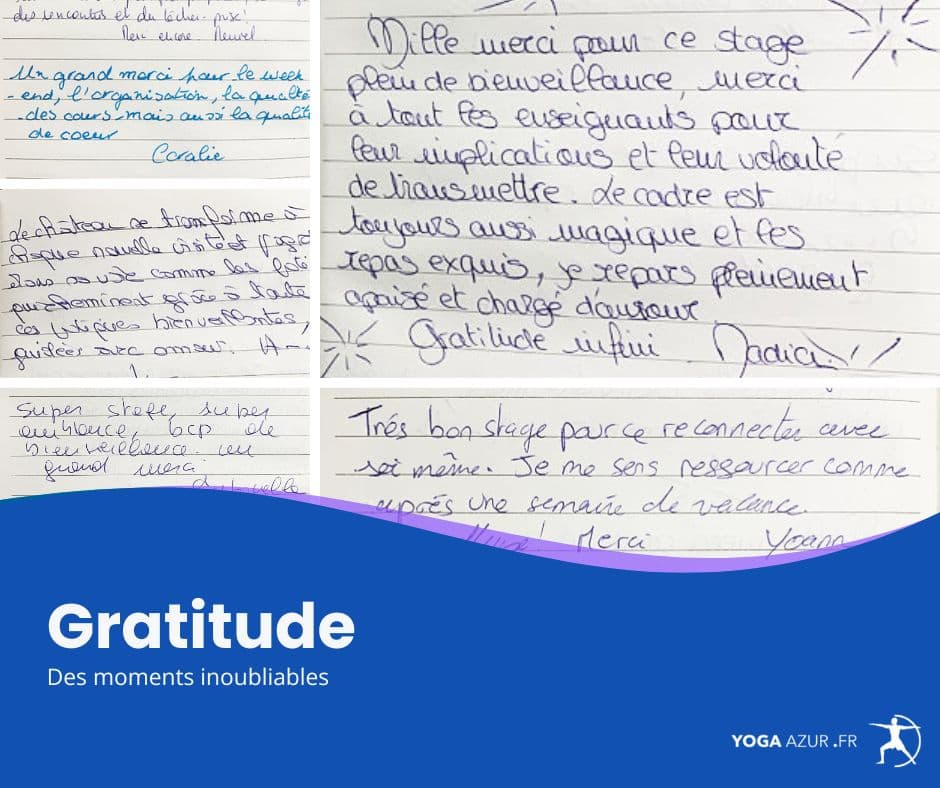 des rencontres et du lâcher-prise!
Merci encore
Un grand merci pour le week
-end, l'organisation, la qualité
des cours mais aussi la qualité
de coeur
Coralie
Le château se transforme à
chaque nouvelle visite et
comme les
grâce à toute
ces bienveillantes,
guidées avec amour. A
Super stage, super
ambiance, bcp de
bienveillance. un
grand merci.
Mille merci pour ce stage
plein de bienveillance, merci
à tout les enseignants pour
leur implications et leur volonté
de transmettre. Le cadre est
toujours aussi magique et les
repas exquis, je repars pleinement
apaisé et chargé d'amour
Gratitude infini Nadia
Trés bon stage pour ce reconnecter avec
soi même. Je me sens ressourcer comme
après une semaine de vacance.
Merci Yoann
Gratitude
Des moments inoubliables
YOGA AZUR.FR